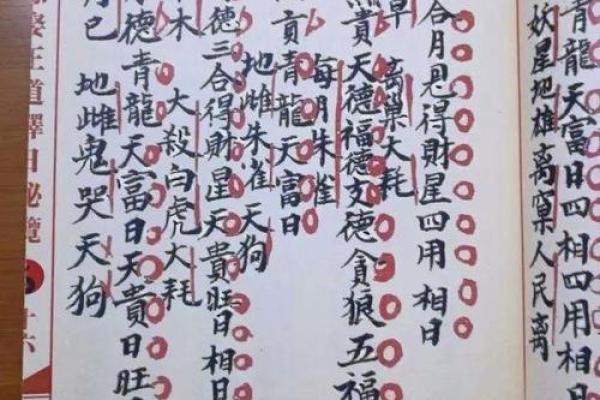 青龍天富日四相四用相日
妖星地雄离窠人民离
合月恩得財星四用相日
离窠大耗
貴天德福德支德貪狼五福
每月朱雀
貢青龍天富日
地雌朱雀天狗
德三合得財星天貴旺日相日
木 大殺白虎大耗
德青龍天富日天貴日旺
月巳 地雌鬼哭天狗
王道擇日秘覽
廿六